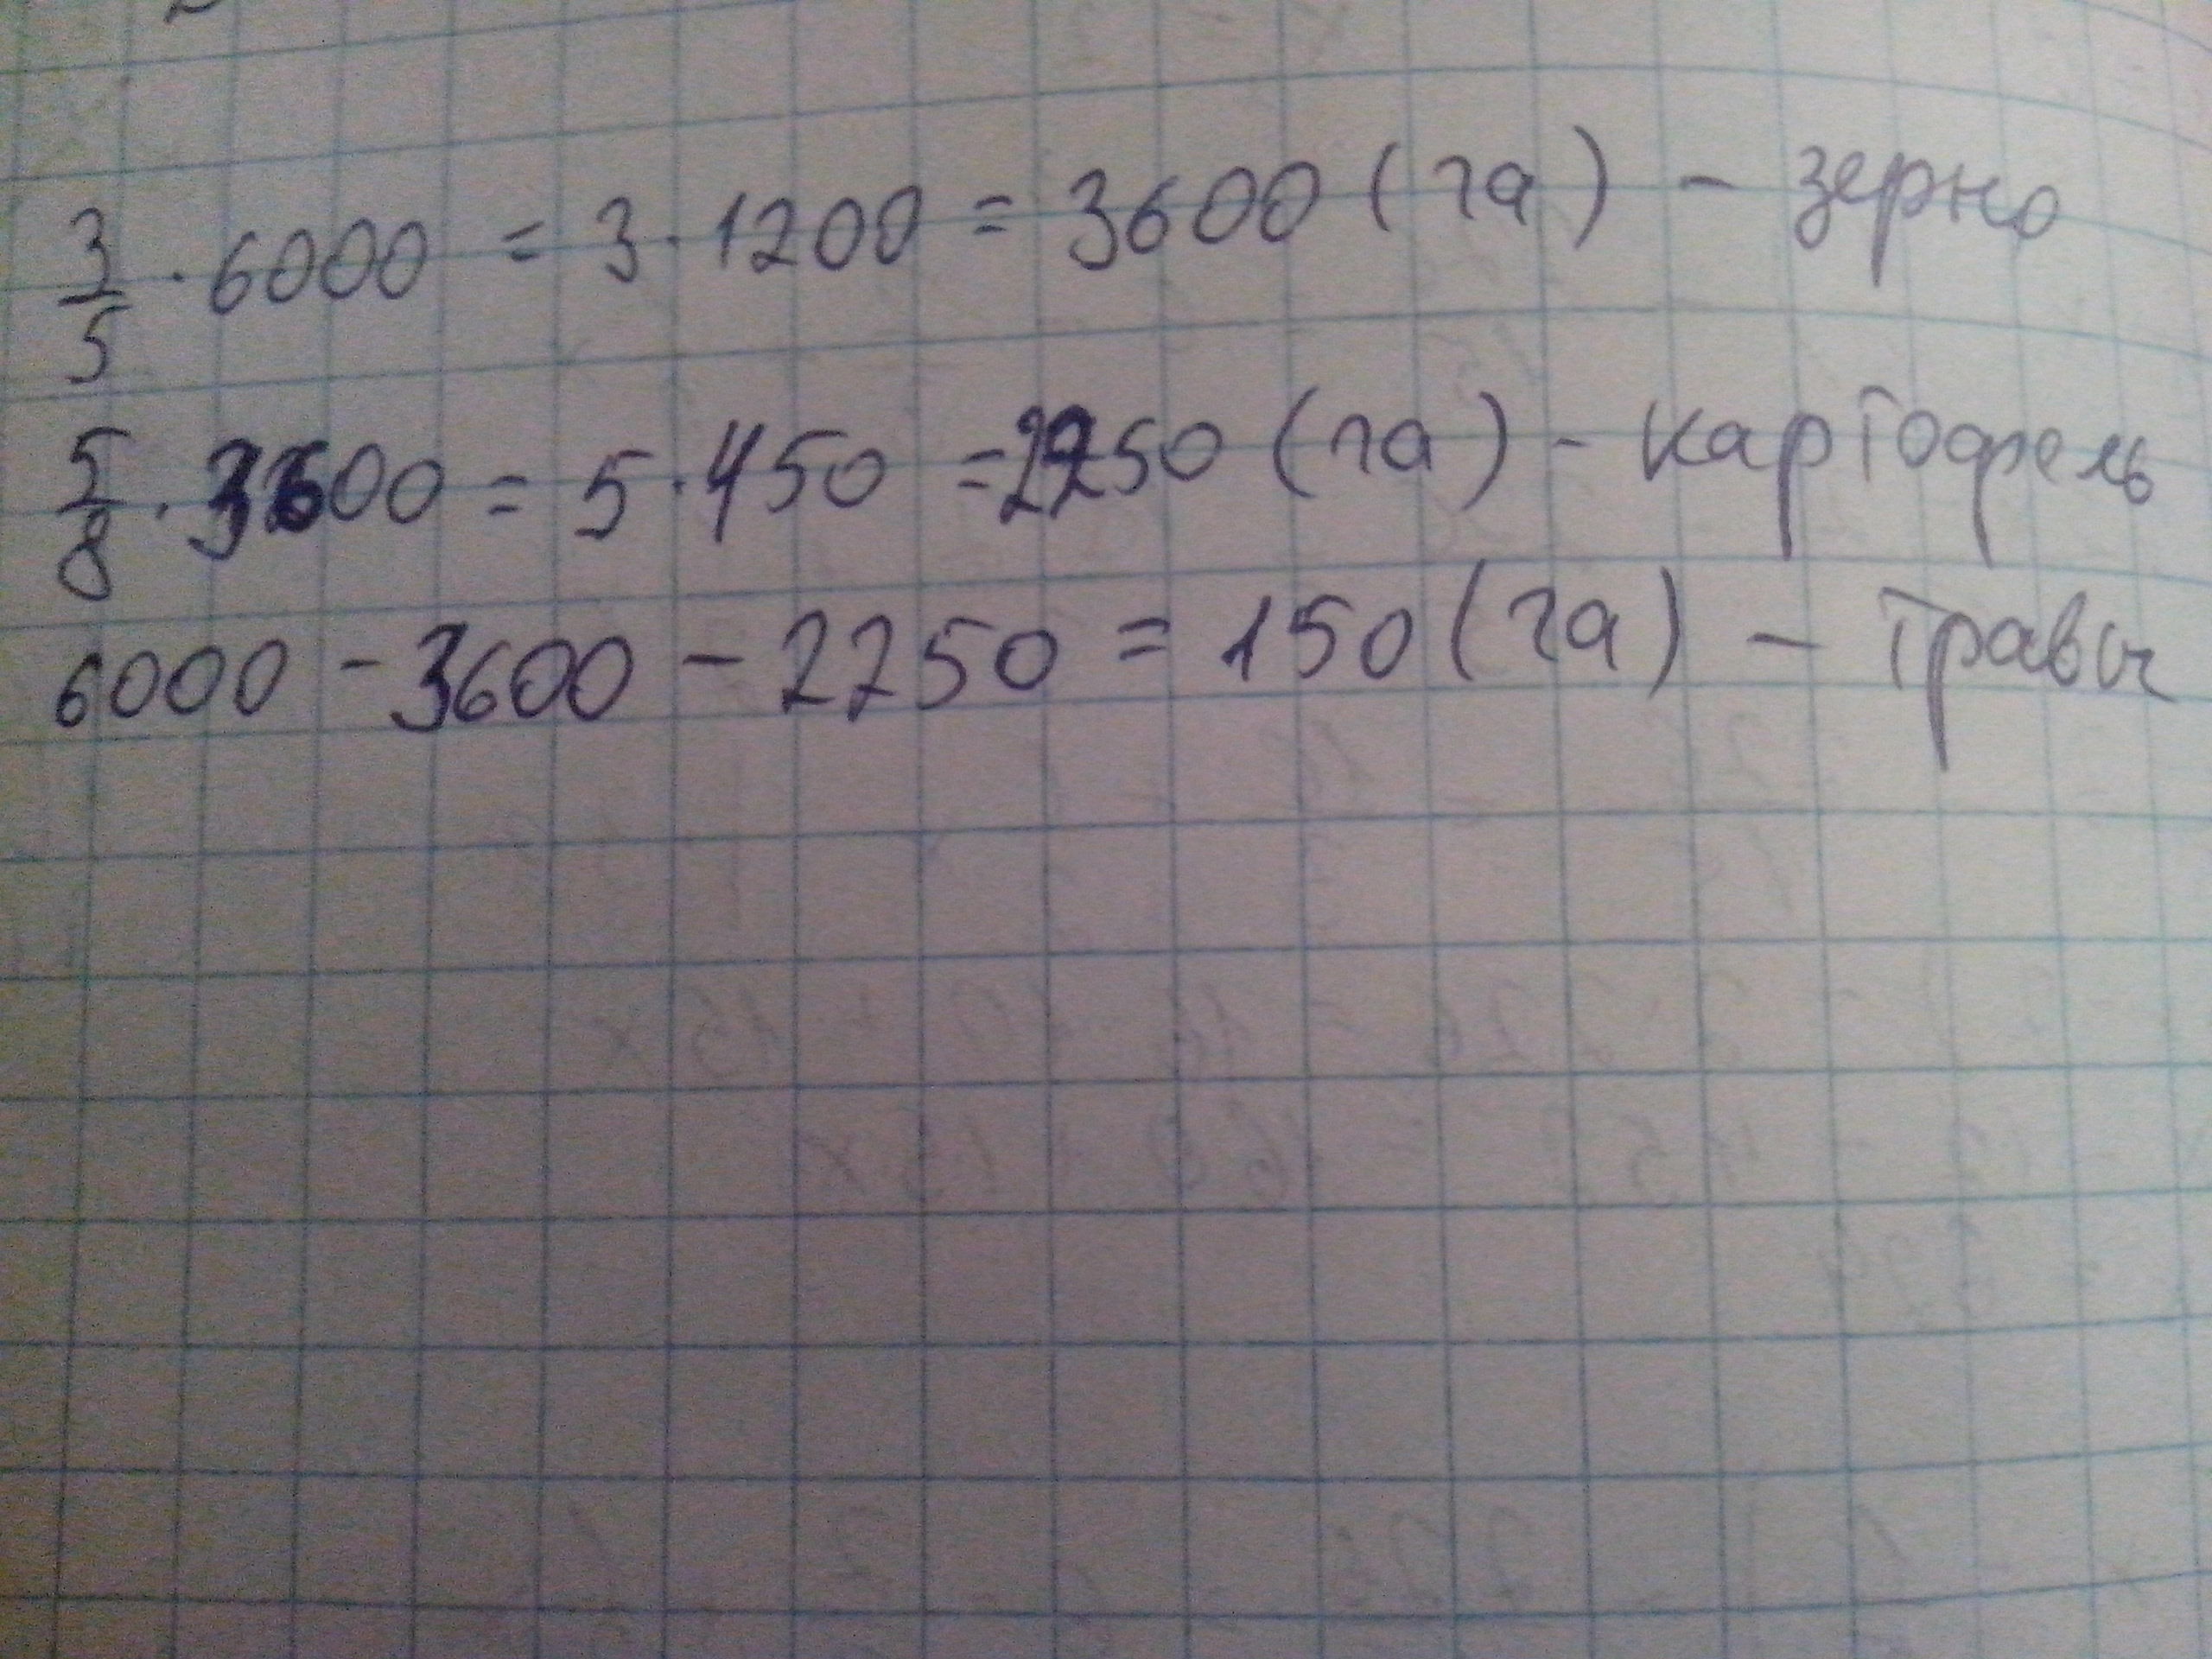 3/5 · 6000 = 3 · 1200 = 3600 (га) - зерно
5/8 · 3600 = 5 · 450 = 2250 (га) - картофель
6000 - 3600 - 2250 = 150 (га) - травы